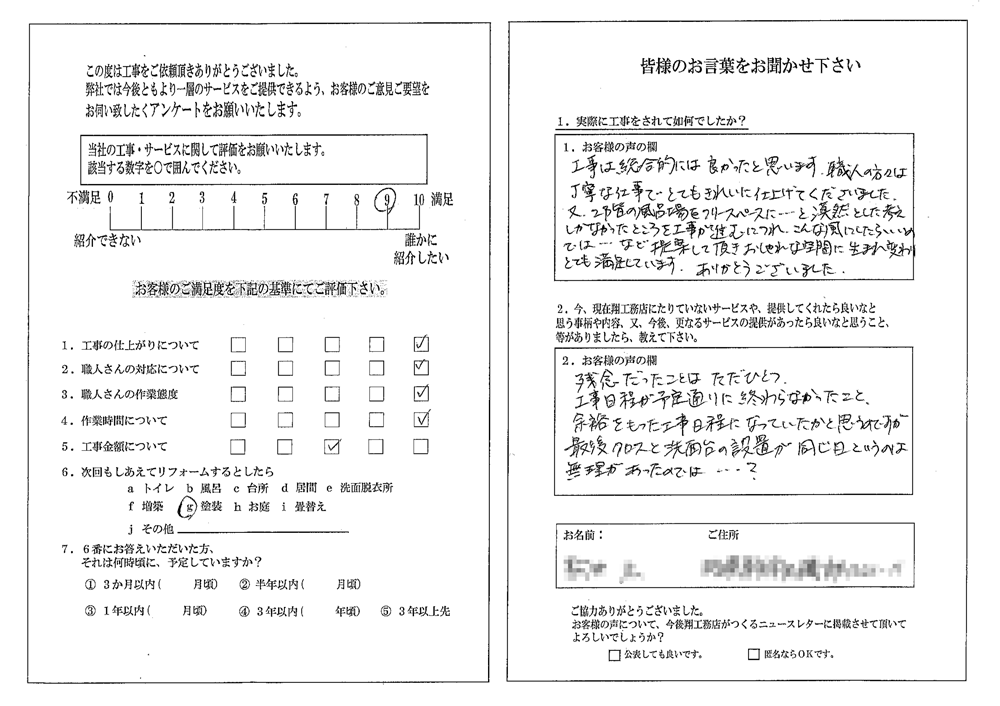 この度は工事をご依頼頂きありがとうございました。
弊社では今後ともより一層のサービスをご提供できるよう、お客様のご意見ご要望を
お伺い致したくアンケートをお願いいたします。
当社の工事・サービスに関して評価をお願いいたします。
該当する数字を○で囲んでください。
不満足 0 1 2 3 4 5 6 7 8 9 10 満足
紹介できない 誰かに
紹介したい
お客様のご満足度を下記の基準にてご評価下さい。
1．工事の仕上がりについて □ □ □ □ ☑
2．職人さんの対応について □ □ □ □ ☑
3．職人さんの作業態度 □ □ □ □ ☑
4．作業時間について □ □ □ □ ☑
5．工事金額について □ □ ☑ □ □
6．次回もしあえてリフォームするとしたら
a トイレ b 風呂 c 台所 d 居間 e 洗面脱衣所
f 増築 g 塗装 h お庭 i 畳替え
j その他
7．6番にお答えいただいた方、
それは何時頃に、予定していますか？
① 3か月以内( 月頃) ② 半年以内( 月頃)
③ 1年以内( 月頃) ④ 3年以内( 年頃) ⑤ 3年以上先
皆様のお言葉をお聞かせ下さい
1．実際に工事をされて如何でしたか？
1．お客様の声の欄
工事は総合的には良かったと思います。職人の方々は
丁寧な仕事で、とてもきれいに仕上げてくださいました。
又、2階の風呂場をフリースペースに…と漠然とした考え
しかなかったところを工事が進むにつれ、こんな風にしたらいいの
では…など提案して頂きおしゃれな空間に生まれ変わり
とても満足しています。ありがとうございました。
2．今、現在翔工務店にたりていないサービスや、提供してくれたら良いなと
思う事柄や内容、又、今後、更なるサービスの提供があったら良いなと思うこと、
等がありましたら、教えて下さい。
2．お客様の声の欄
残念だったことはただひとつ、
工事日程が予定通りに終わらなかったこと、
余裕をもった工事日程になっていたかと思うのですが
最後クロスと洗面台の設置が同じ日というのは
無理があったのでは…？
お名前： ご住所
ご協力ありがとうございました。
お客様の声について、今後翔工務店がつくるニュースレターに掲載させて頂いて
よろしいでしょうか？
□ 公表しても良いです。 □ 匿名ならOKです。